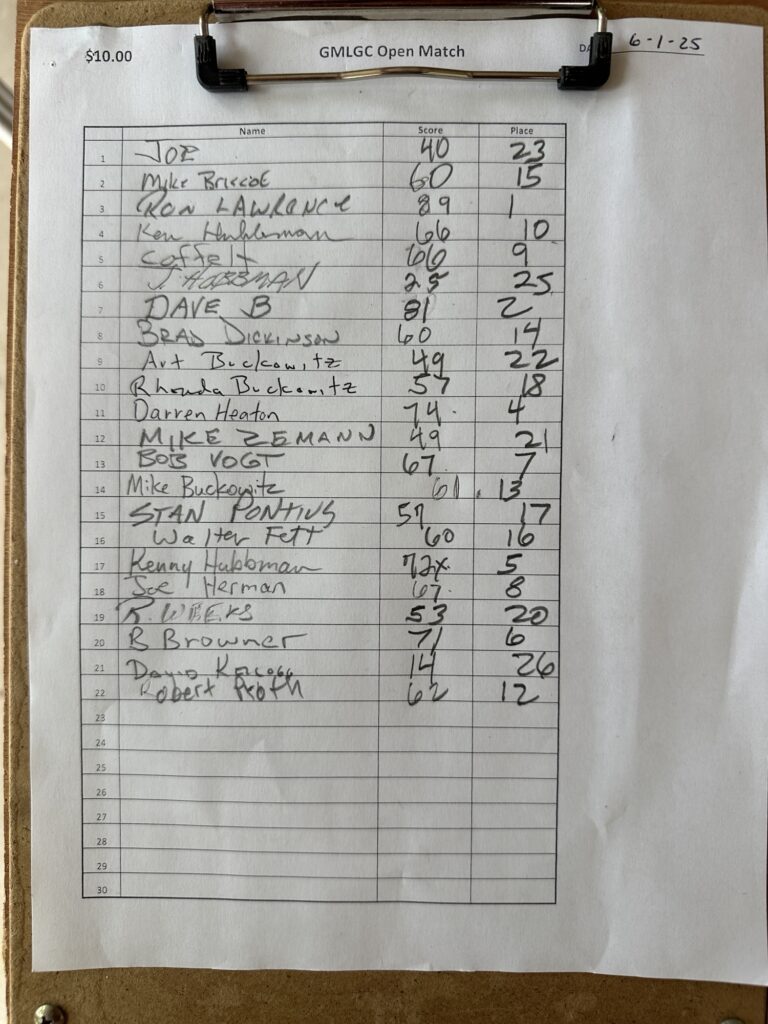 $10.00 GMLGC Open Match DA 6-1-25
Name Score Place
1 JOE 40 23
2 Mike Briscoe 60 15
3 RON LAWRENCE 89 1
4 Ken Hubbman 66 10
5 Coffelt 66 9
6 J. HABBMAN 25 25
7 DAVE B 81 2
8 BRAD DICKINSON 60 14
9 Art Buckowitz 49 22
10 Rhonda Buckowitz 57 18
11 Darren Heaton 74. 4
12 MIKE ZEMANN 49 21
13 BOB VOGT 67. 7
14 Mike Buckowitz 61. 13
15 STAN PONTIUS 57 17
16 Walter Fett 60 16
17 Kenny Hubbman 72x. 5
18 Joe Herman 67. 8
19 R. WEEKS 53 20
20 B Browner 71 6
21 David Kellogg 14 26
22 Robert Proth 62 12
23
24
25
26
27
28
29
30